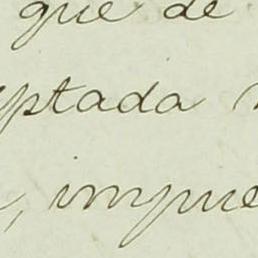 que de
ptada
, impue